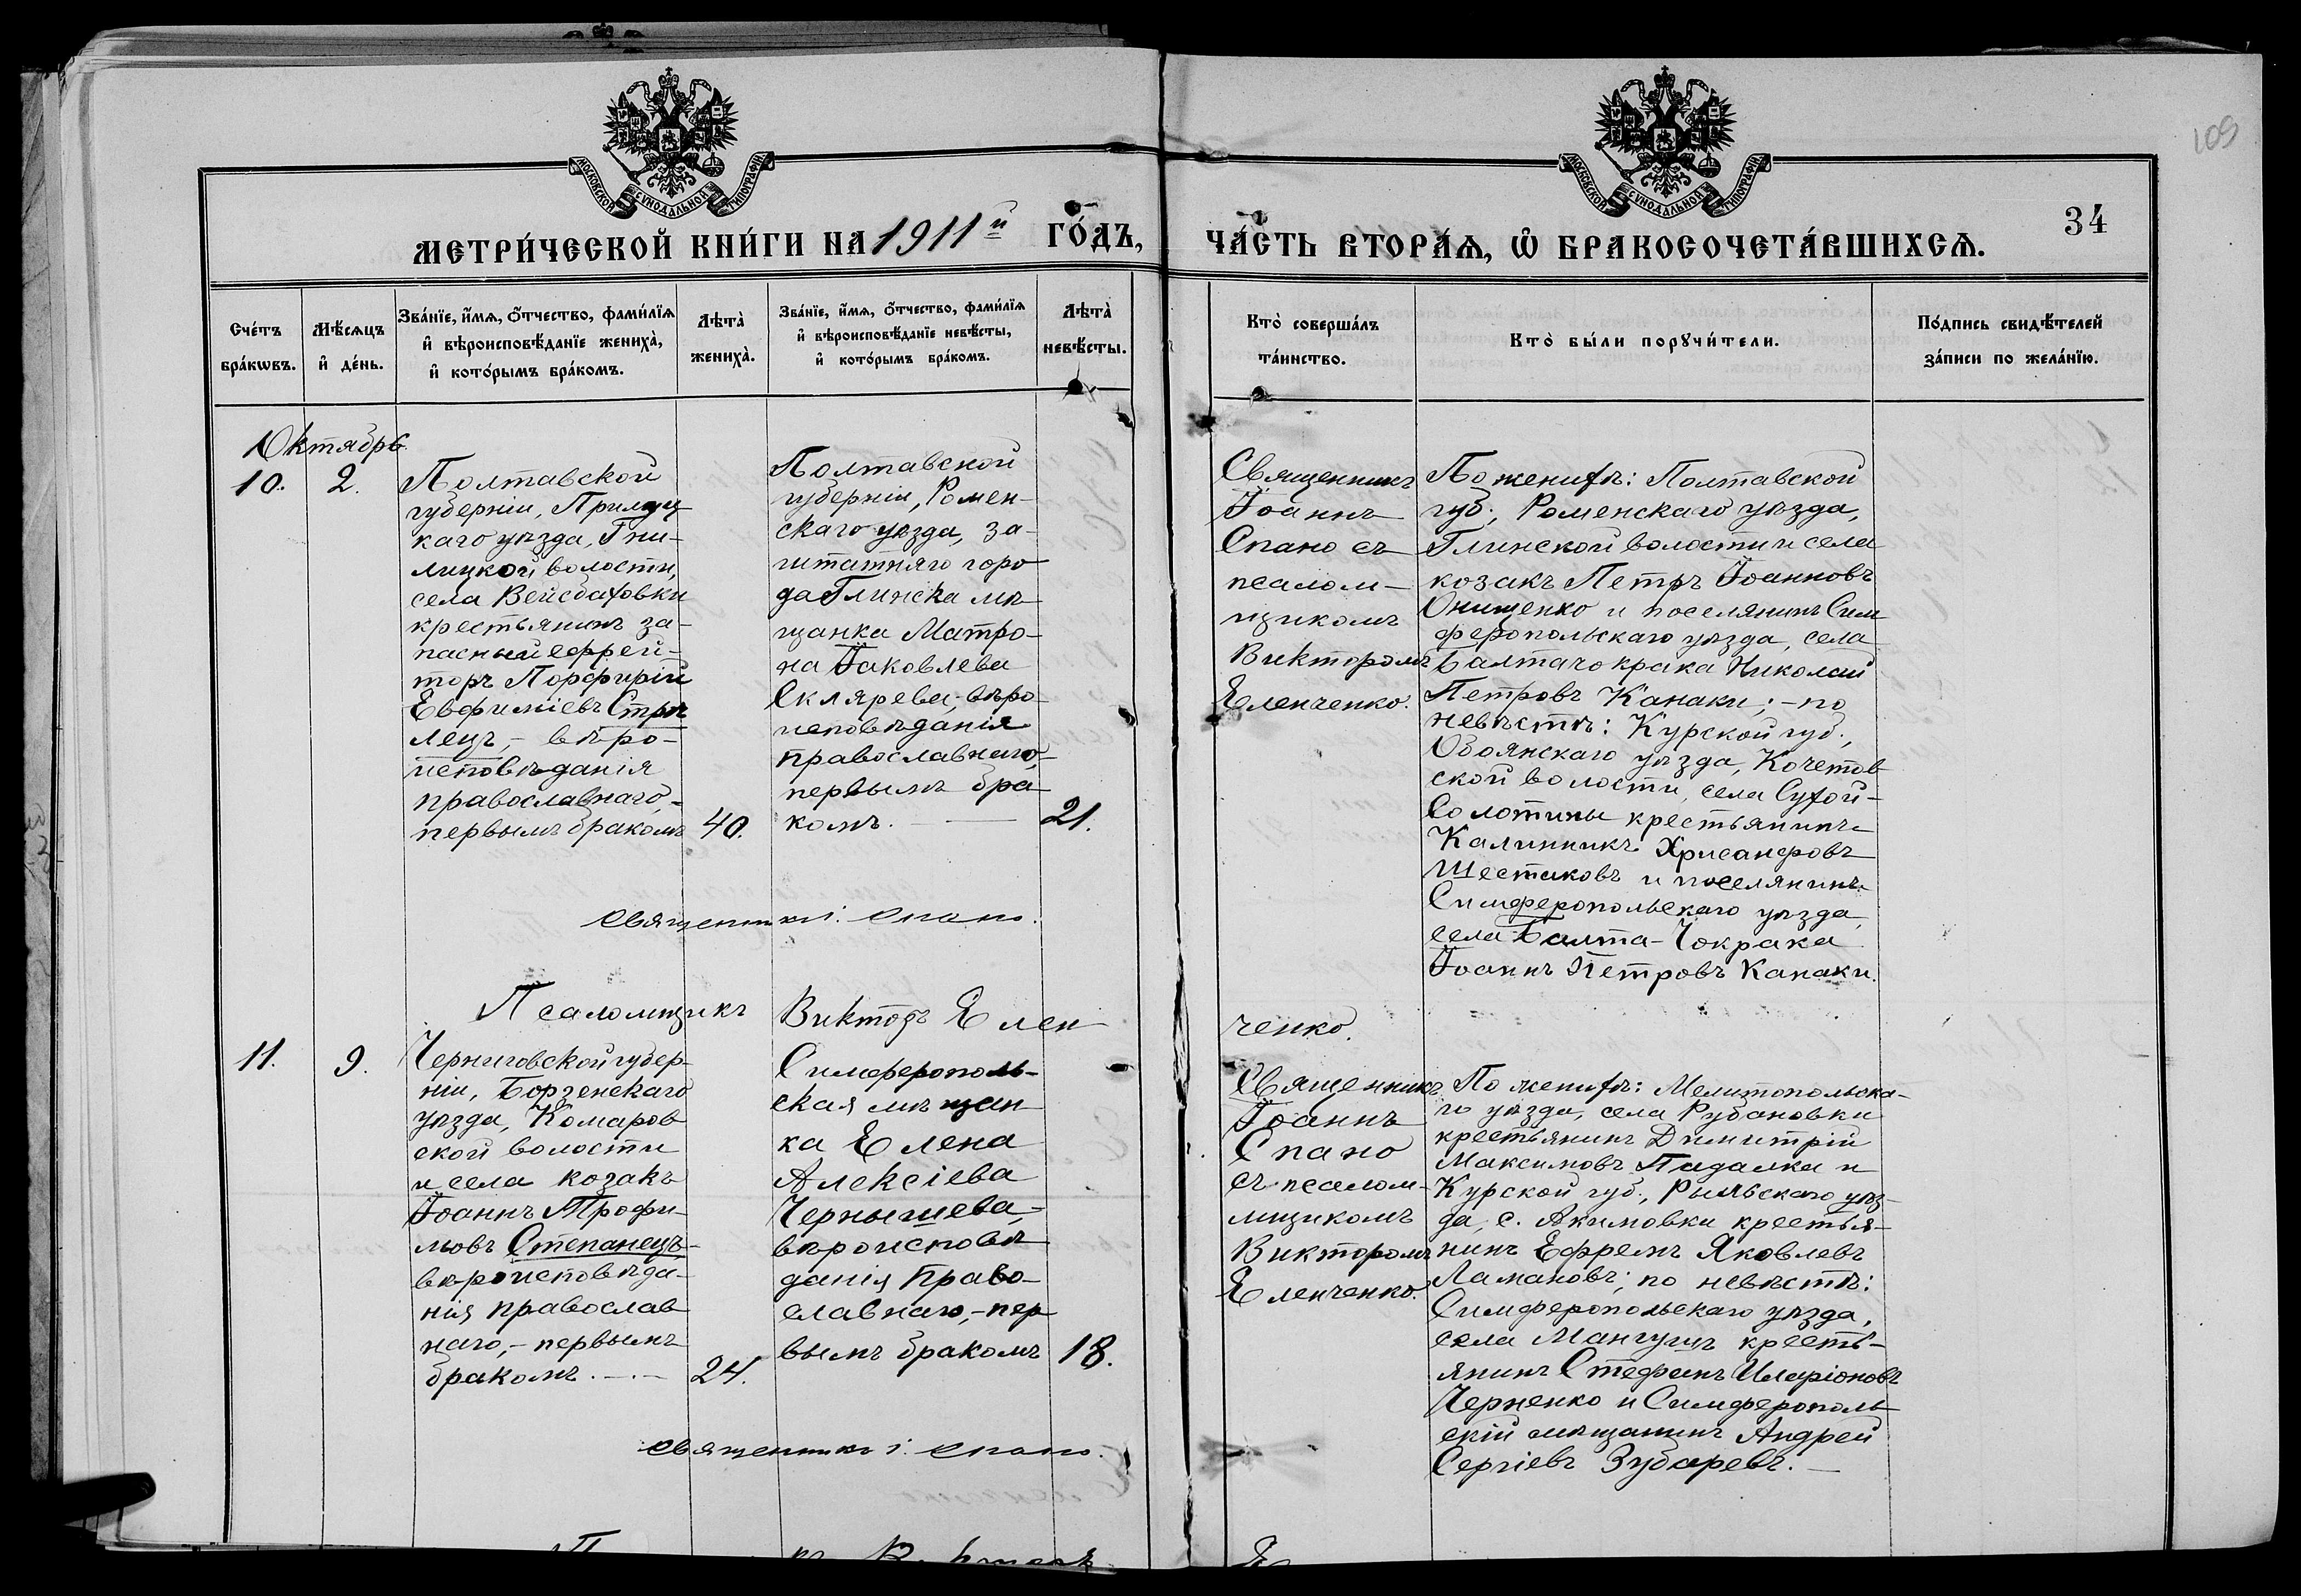 109
МОСКОВСКОЙ СѴНОДАЛЬНОЙ ТИПОГРАФІИ
МОСКОВСКОЙ СѴНОДАЛЬНОЙ ТИПОГРАФІИ
34
МЕТРИ́ЧЕСКОЙ КНИ́ГИ НА 1911й ГО́ДЪ,
ЧА́СТЬ ВТОРА́Ѧ, Ѽ БРАКОСОЧЕТА́ВШИХСѦ.
Сче́тъ
бра́кѡвъ.
Мѣ́сѧцъ
и҆ де́нь.
Зва́нїе, и҆́мѧ, о҆́тчество, фами́лїѧ
и҆ вѣроисповѣ́данїе жениха̀,
и҆ кото́рымъ бра́комъ.
Лѣта̀
жениха̀.
Зва́нїе, и҆́мѧ, о҆́тчество, фами́лїѧ
и҆ вѣроисповѣ́данїе невѣ́сты,
и҆ кото́рымъ бра́комъ.
Лѣта̀
невѣ́сты.
Кто̀ соверша́лъ
та́инство.
Кто̀ бы́ли порꙋчи́тели.
По́дпись свидѣ́телей
за́писи по жела́нїю.
Октябрь.
10.
2.
Полтавской
губерніи, Прилуц
каго уѣзда, Гни-
лицкой волости,
села Вейсбаховки
крестьянинъ за-
пасный ефрей-
торъ Порфирій
Евфиміевъ Стрѣ
лецъ, - вѣро-
исповѣданія
православнаго, -
первымъ бракомъ
40.
Полтавской
губерніи, Ромен-
скаго уѣзда, за-
штатнаго горо
да Глинска мѣ
щанка Матро-
на Іаковлева
Склярева, вѣро
исповѣданія
православнаго, -
первымъ бра
комъ. —
21.
Священникъ
Іоаннъ
Спано съ
псалом-
щикомъ
Викторомъ
Еленченко.
По женихѣ: Полтавской
губ., Роменскаго уѣзда,
Глинской волости и села
козакъ Петръ Іоанновъ
Онищенко и поселянинъ Сим
феропольскаго уѣзда, села
Балтачокрака Николай
Петровъ Канаки; - по
невѣстѣ: Курской губ.,
Обоянскаго уѣзда, Кочетов
ской волости, села Сухой-
Солотины крестьянинъ
Калинникъ Хрисанфовъ
Шестаковъ и поселянинъ
Симферопольскаго уѣзда,
села Балта-Чокрака
Іоаннъ Петровъ Канаки.
Священникъ І. Спано.
Псаломщикъ Викторъ Елен
ченко.
11.
9.
Черниговской губер-
ніи, Борзенскаго
уѣзда, Комаров
ской волости
и села козакъ
Іоаннъ Трофи-
мовъ Степанецъ -
вѣроисповѣда-
нія православ
наго, - первымъ
бракомъ. —
24.
Симферополь-
ская мѣщан
ка Елена
Алексіева
Чернышева, -
вѣроисповѣ
данія право-
славнаго, - пер
вымъ бракомъ
18.
Священникъ
Іоаннъ
Спано
съ псалом-
мщикомъ
Викторомъ
Еленченко.
По женихѣ: Мелитопольска-
го уѣзда, села Рубановки
крестьянинъ Димитрій
Максимовъ Падалка и
Курской губ., Рыльскаго уѣз-
да, с. Акимовки крестья-
нинъ Ефремъ Яковлевъ
Ламановъ; по невѣстѣ:
Симферопольскаго уѣзда,
села Мангушъ кресть-
янинъ Стефанъ Иларіоновъ
Черненко и Симферополь
скій мѣщанинъ Андрей
Сергіевъ Зубаревъ. —
Священникъ І. Спано.